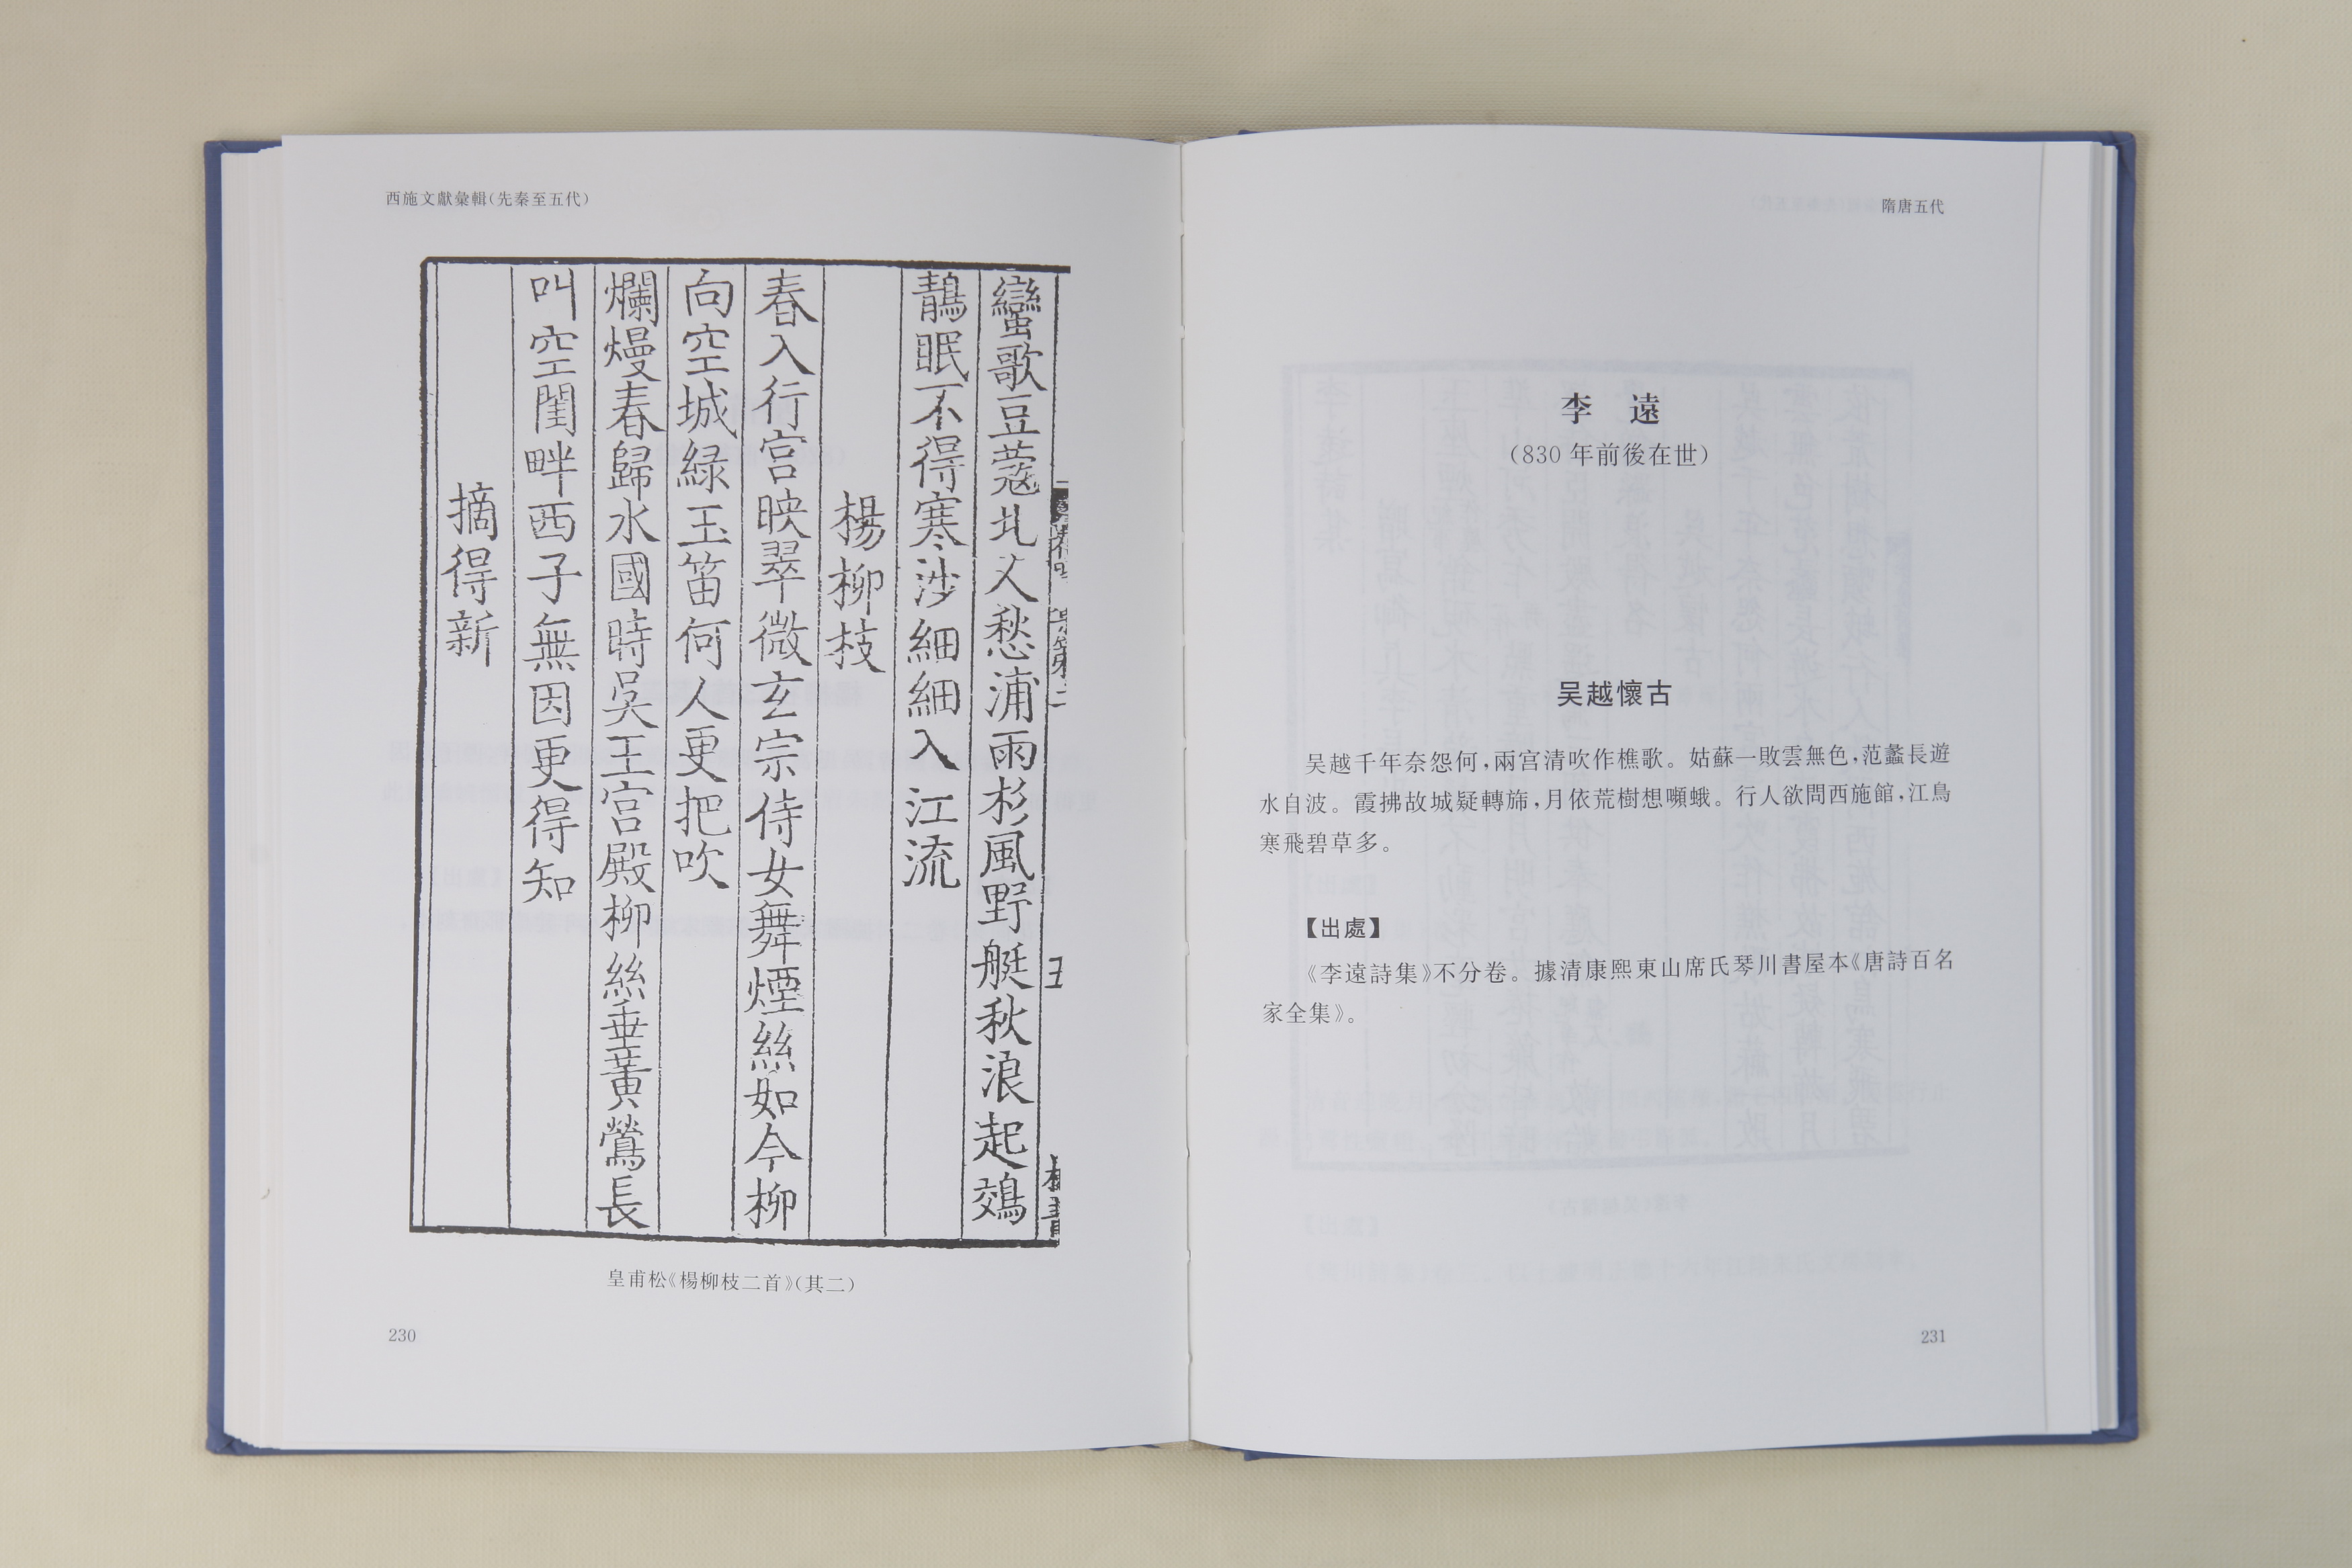 西施文獻彙輯（先秦至五代）
蠻歌豆蔻北人愁浦雨杉風野艇秋浪起鵁
鶄眠不得寒沙細細入江流
楊柳枝
春入行宮映翠微玄宗侍女舞煙絲如今柳
向空城綠玉笛何人更把吹
爛熳春歸水國時吳王宮殿柳絲垂黃鶯長
叫空閨畔西子無因更得知
摘得新
皇甫松《楊柳枝二首》（其二）
230
隋唐五代
李　遠
（830 年前後在世）
吴越懷古
吴越千年奈怨何，兩宫清吹作樵歌。姑蘇一敗雲無色，范蠡長遊
水自波。霞拂故城疑轉斾，月依荒樹想嚬蛾。行人欲問西施館，江鳥
寒飛碧草多。
【出處】
《李遠詩集》不分卷。據清康熙東山席氏琴川書屋本《唐詩百名
家全集》。
231